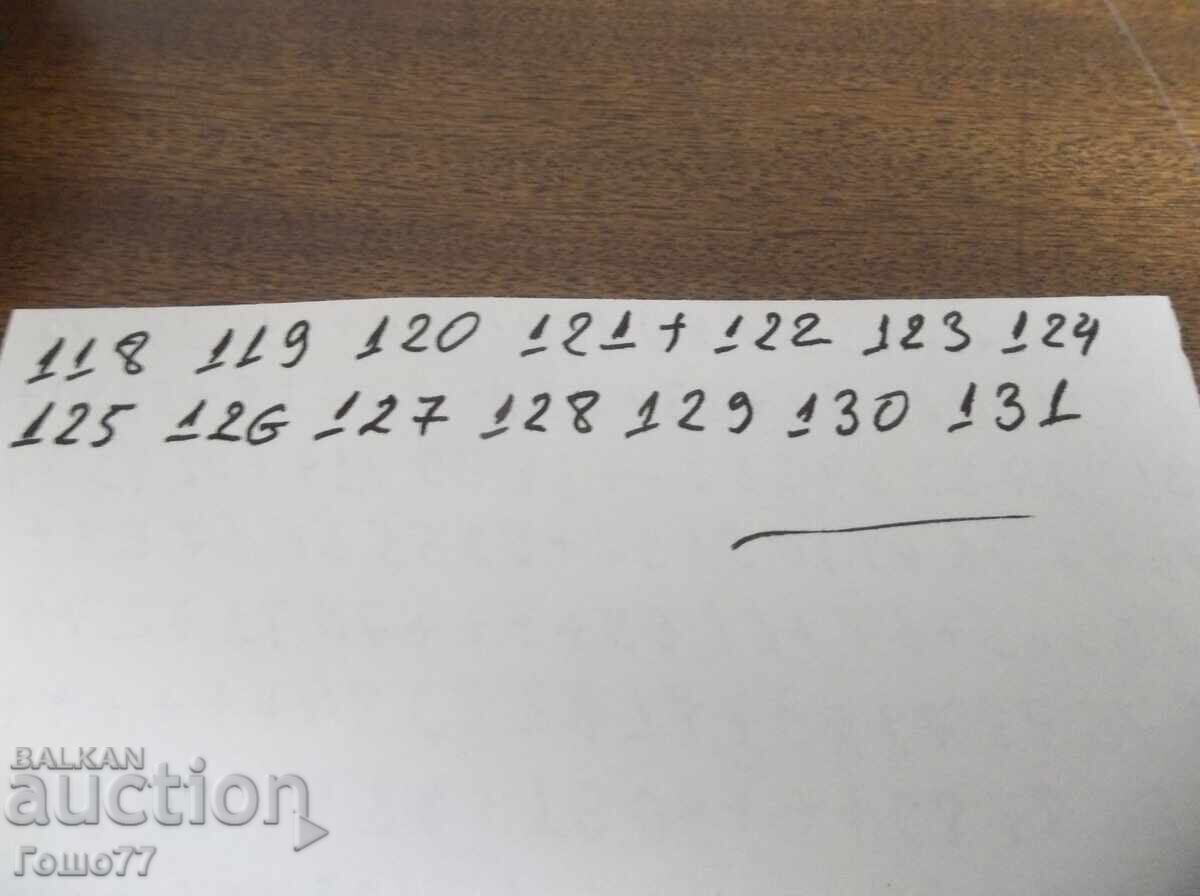 118 119 120 121+ 122 123 124
125 126 127 128 129 130 131
BALKAN
auction
Гошо77